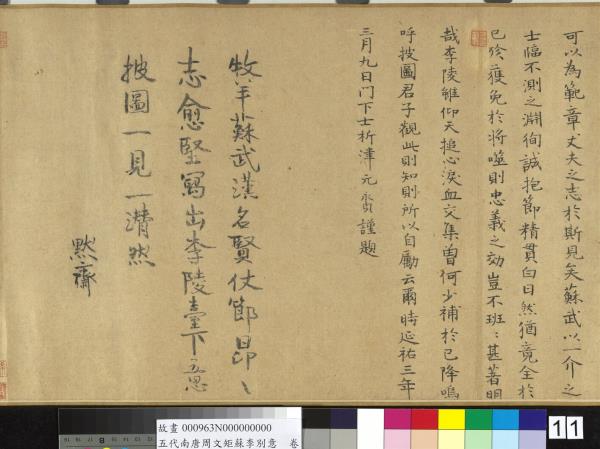 可以為範章丈夫之志於斯見矣蘇武以一介之
士臨不測之淵徇誠抱節精貫白日然猶竟全於
已終獲免於將噬則忠義之効豈不班〻甚著明
哉李陵雖仰天搥心淚血交集曾何少補於已降嗚
呼披圖君子觀此則知則所以自勵云爾時延祐三年
三月九日门下士析津元賚謹題
牧羊蘇武漢名賢仗節昂〻
志愈堅寫出李陵臺下思
披圖一見一潸然
默齋
故畫 000963N000000000
五代南唐周文矩蘇李別意 卷
11